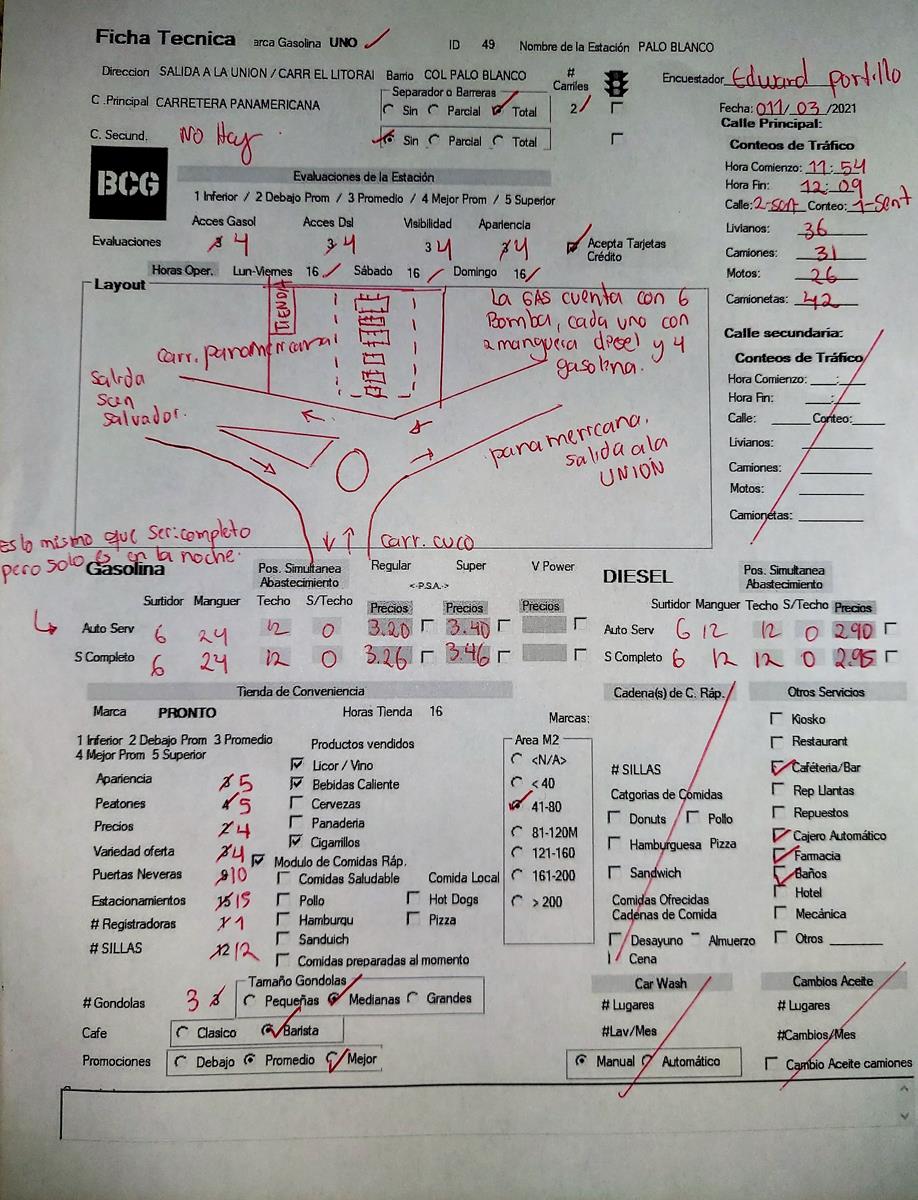 Ficha Tecnica arca Gasolina UNO ID 49 Nombre de la Estación PALO BLANCO
Direccion SALIDA A LA UNION / CARR EL LITORAl Barrio COL PALO BLANCO # Carriles Encuestador Edward Portillo
C .Principal CARRETERA PANAMERICANA Separador o Barreras Sin Parcial Total 2 Fecha: 011/03/2021
C. Secund. No Hay Sin Parcial Total
Calle Principal:
Conteos de Tráfico
Hora Comienzo: 11:54
Hora Fin: 12:09
Calle: 2-sent Conteo: 1-sent
Livianos: 36
Camiones: 31
Motos: 26
Camionetas: 42
BCG
Evaluaciones de la Estación
1 Inferior / 2 Debajo Prom / 3 Promedio / 4 Mejor Prom / 5 Superior
Acces Gasol Acces Dsl Visibilidad Apariencia
Evaluaciones 3 4 3 4 3 4 4 Acepta Tarjetas Crédito
Horas Oper. Lun-Viernes 16 Sábado 16 Domingo 16
Layout
TIENDA
La GAS cuenta con 6
Bomba, cada uno con
2 manguera diesel y 4
gasolina.
carr. panamericana
Salida
San
Salvador.
panamericana.
salida a la
UNIÓN
carr. cuco
Calle secundaria:
Conteos de Tráfico
Hora Comienzo: ___:___
Hora Fin: ___:___
Calle: ______ Conteo:______
Livianos:
Camiones:
Motos:
Camionetas:
Es lo mismo que Ser. completo
pero solo es en la noche.
Gasolina Pos. Simultanea Abastecimiento Regular Super V Power
<-P.S.A.->
Surtidor Manguer Techo S/Techo Precios Precios Precios
Auto Serv 6 24 12 0 3.20 3.40
S Completo 6 24 12 0 3.26 3.46
DIESEL Pos. Simultanea Abastecimiento
Surtidor Manguer Techo S/Techo Precios
Auto Serv 6 12 12 0 2.90
S Completo 6 12 12 0 2.95
Tienda de Conveniencia
Marca PRONTO Horas Tienda 16
1 Inferior 2 Debajo Prom 3 Promedio
4 Mejor Prom 5 Superior
Apariencia 5
Peatones 5
Precios 4
Variedad oferta 4
Puertas Neveras 10
Estacionamientos 15
# Registradoras 1
# SILLAS 12 12
Productos vendidos
Licor / Vino
Bebidas Caliente
Cervezas
Panaderia
Cigarrillos
Modulo de Comidas Ráp.
Comidas Saludable Comida Local
Pollo Hot Dogs
Hamburgu Pizza
Sanduich
Comidas preparadas al momento
Marcas:
Area M2
<N/A>
< 40
41-80
81-120M
121-160
161-200
> 200
# Gondolas 3 Tamaño Gondolas Pequeñas Medianas Grandes
Cafe Clasico Barista
Promociones Debajo Promedio Mejor
Cadena(s) de C. Ráp.
# SILLAS
Catgorias de Comidas
Donuts Pollo
Hamburguesa Pizza
Sandwich
Comidas Ofrecidas
Cadenas de Comida
Desayuno Almuerzo
Cena
Otros Servicios
Kiosko
Restaurant
Caféteria/Bar
Rep Llantas
Repuestos
Cajero Automático
Farmacia
Baños
Hotel
Mecánica
Otros
Car Wash
# Lugares
#Lav/Mes
Manual Automático
Cambios Aceite
# Lugares
#Cambios/Mes
Cambio Aceite camiones